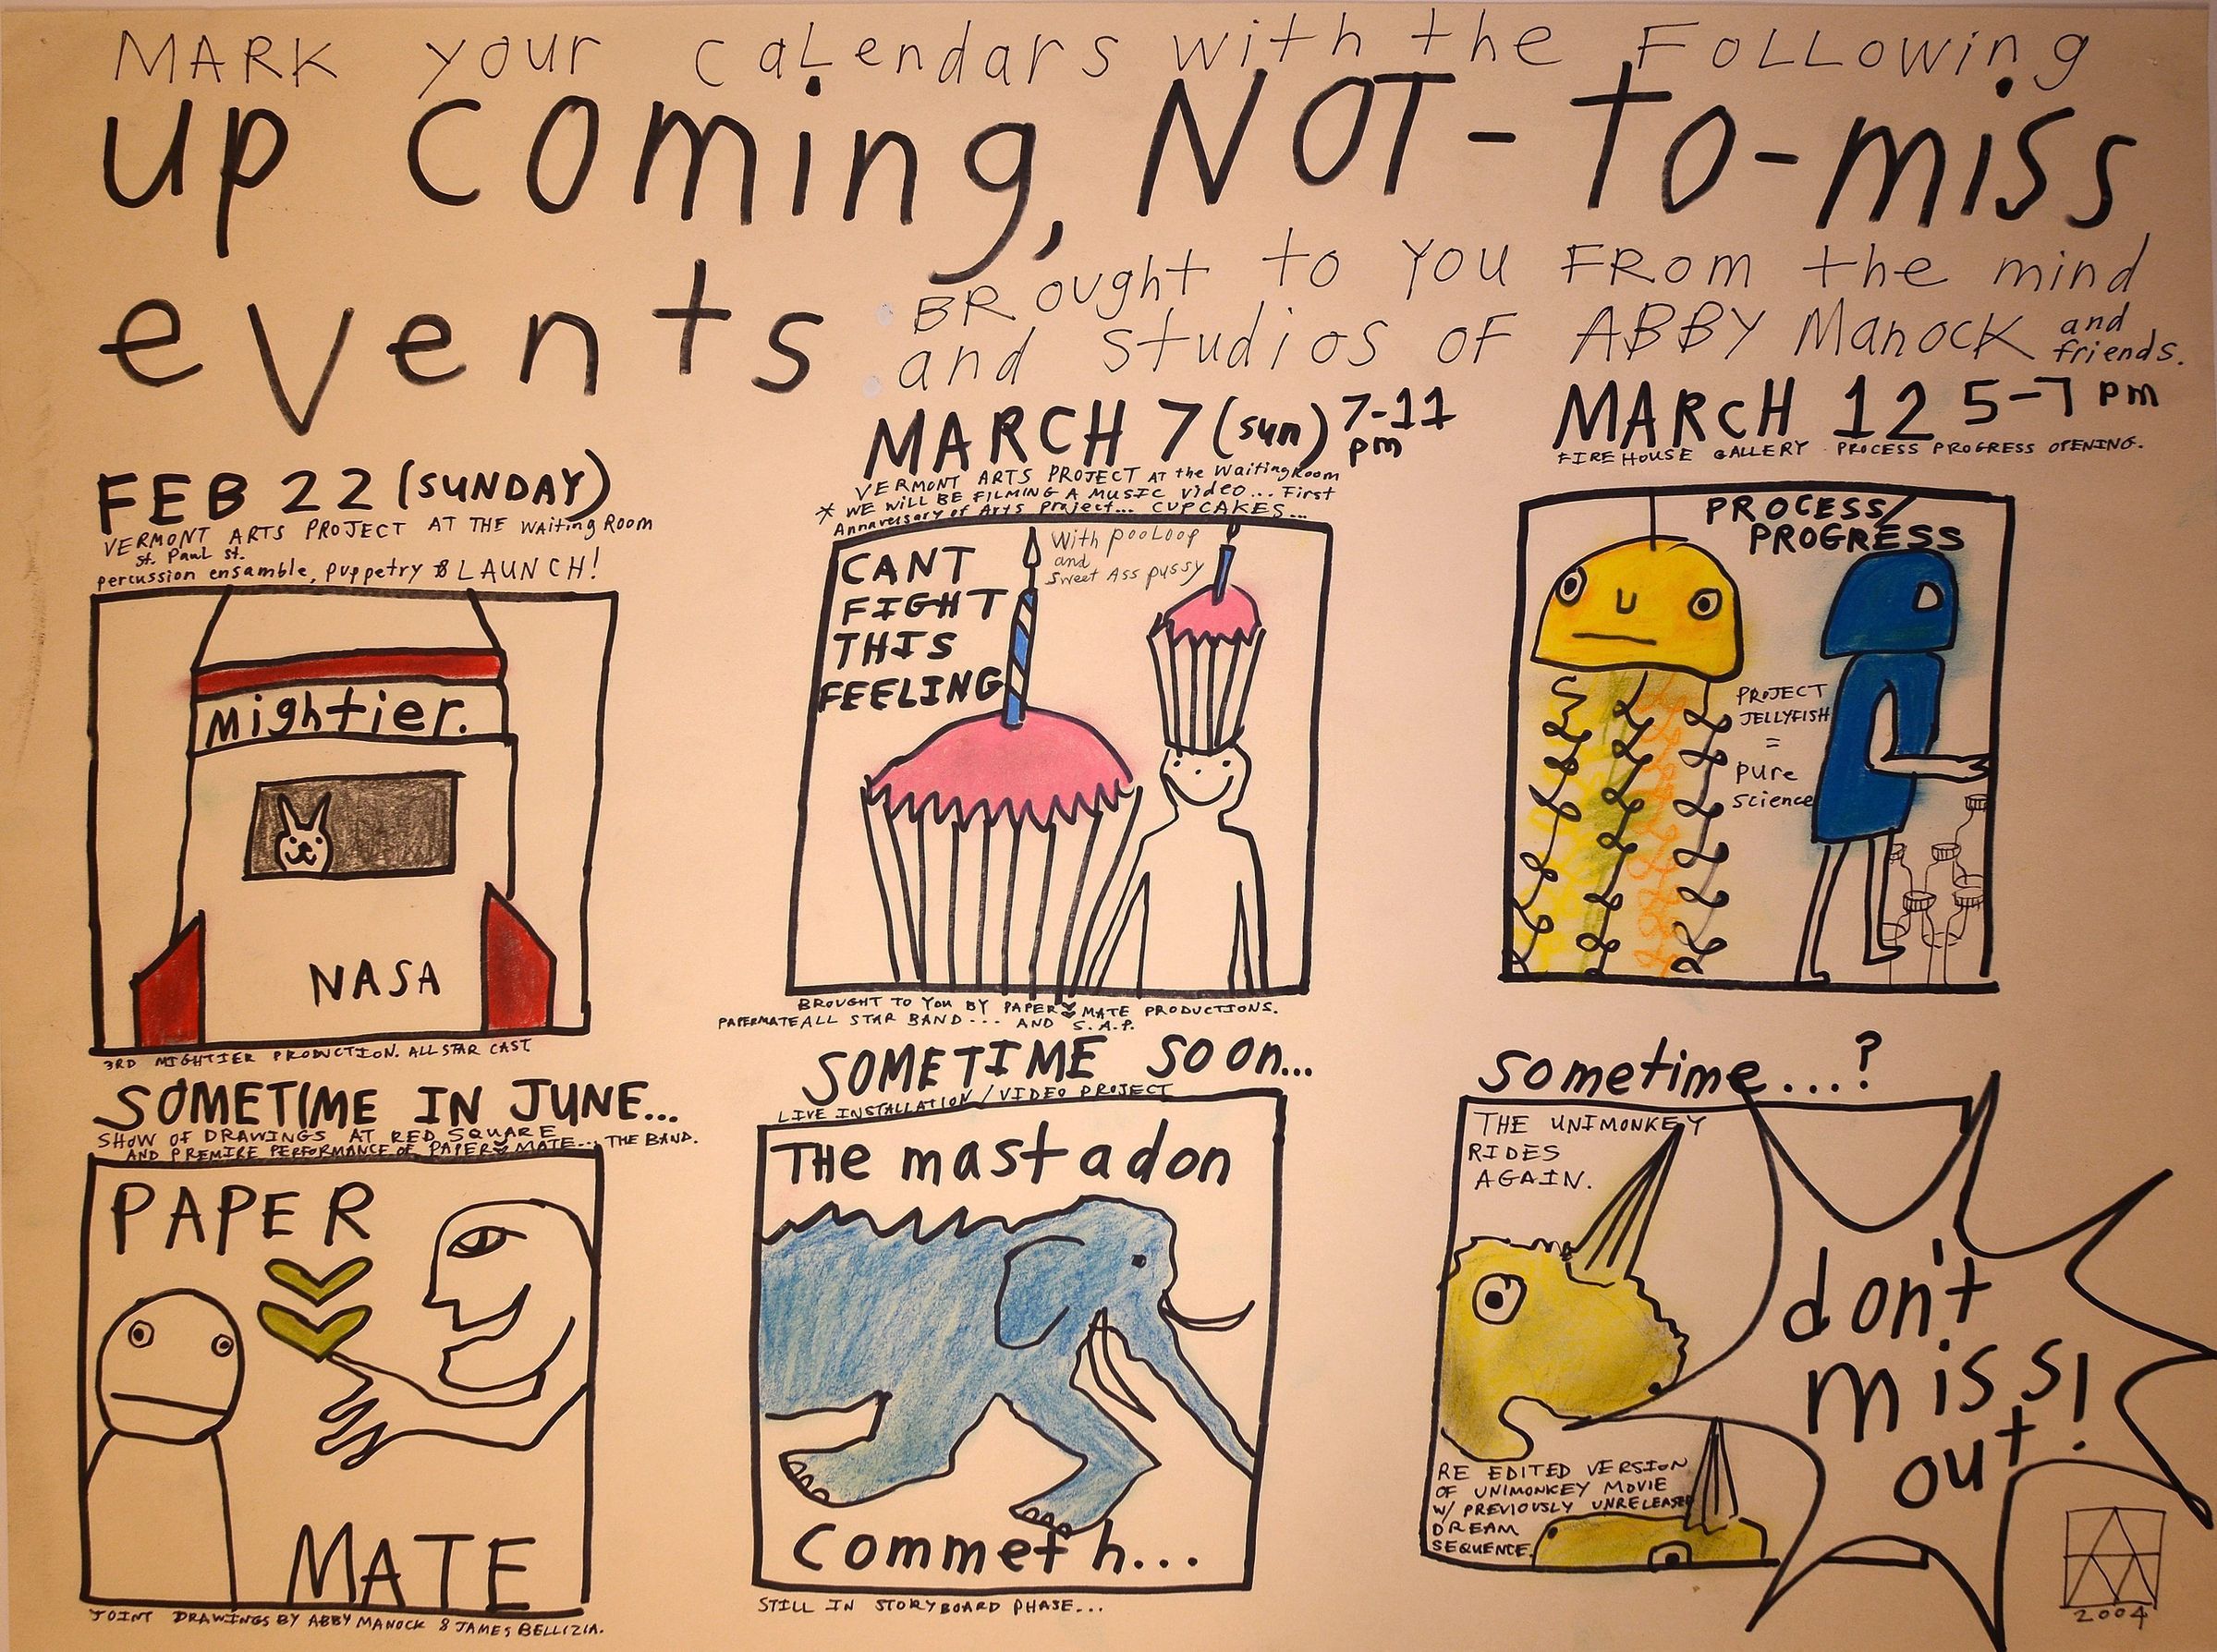 MARK your caLendars with the FoLLowing
up coming, NOT-To-miss
events
BRought to You FRom the mind
and studios of ABBY Manock and
friends.
FEB 22 (SUNDAY)
VERMONT ARTS PROJECT AT THE Waiting Room
St. Paul St.
percussion ensamble, puppetry & LAUNCH!
mightier.
NASA
3RD MIGHTIER PRODUCTION. ALL STAR CAST
MARCH 7 (sun) 7-11
pm
VERMONT ARTS PROJECT AT the Waiting Room
* WE WILL BE FILMING A MUSIC video... First
Annaversary of Arts Project... CUPCAKES...
CANT
FIGHT
THIS
FEELING
With pooLoop
and
Sweet Ass pussy
BROUGHT TO YOU BY PAPER MATE PRODUCTIONS.
PAPERMATE ALL STAR BAND... AND S.A.P.
MARCH 12 5-7 pm
FIREHOUSE GALLERY PROCESS PROGRESS OPENING.
PROCESS/
PROGRESS
PROJECT
JELLYFISH
=
pure
science
SOMETIME IN JUNE...
SHOW OF DRAWINGS AT RED SQUARE
AND PREMIRE PERFORMANCE OF PAPER MATE... THE BAND.
PAPER
MATE
JOINT DRAWINGS BY ABBY MANOCK & JAMES BELLIZIA.
SOMETIME SOON...
LIVE INSTALLATION / VIDEO PROJECT
THe mastadon
Commeth...
STILL IN STORYBOARD PHASE...
Sometime...?
THE UNIMONKEY
RIDES
AGAIN.
don't
miss
out!
RE EDITED VERSION
OF UNIMONKEY MOVIE
W/ PREVIOUSLY UNRELEASED
DREAM
SEQUENCE.
2004